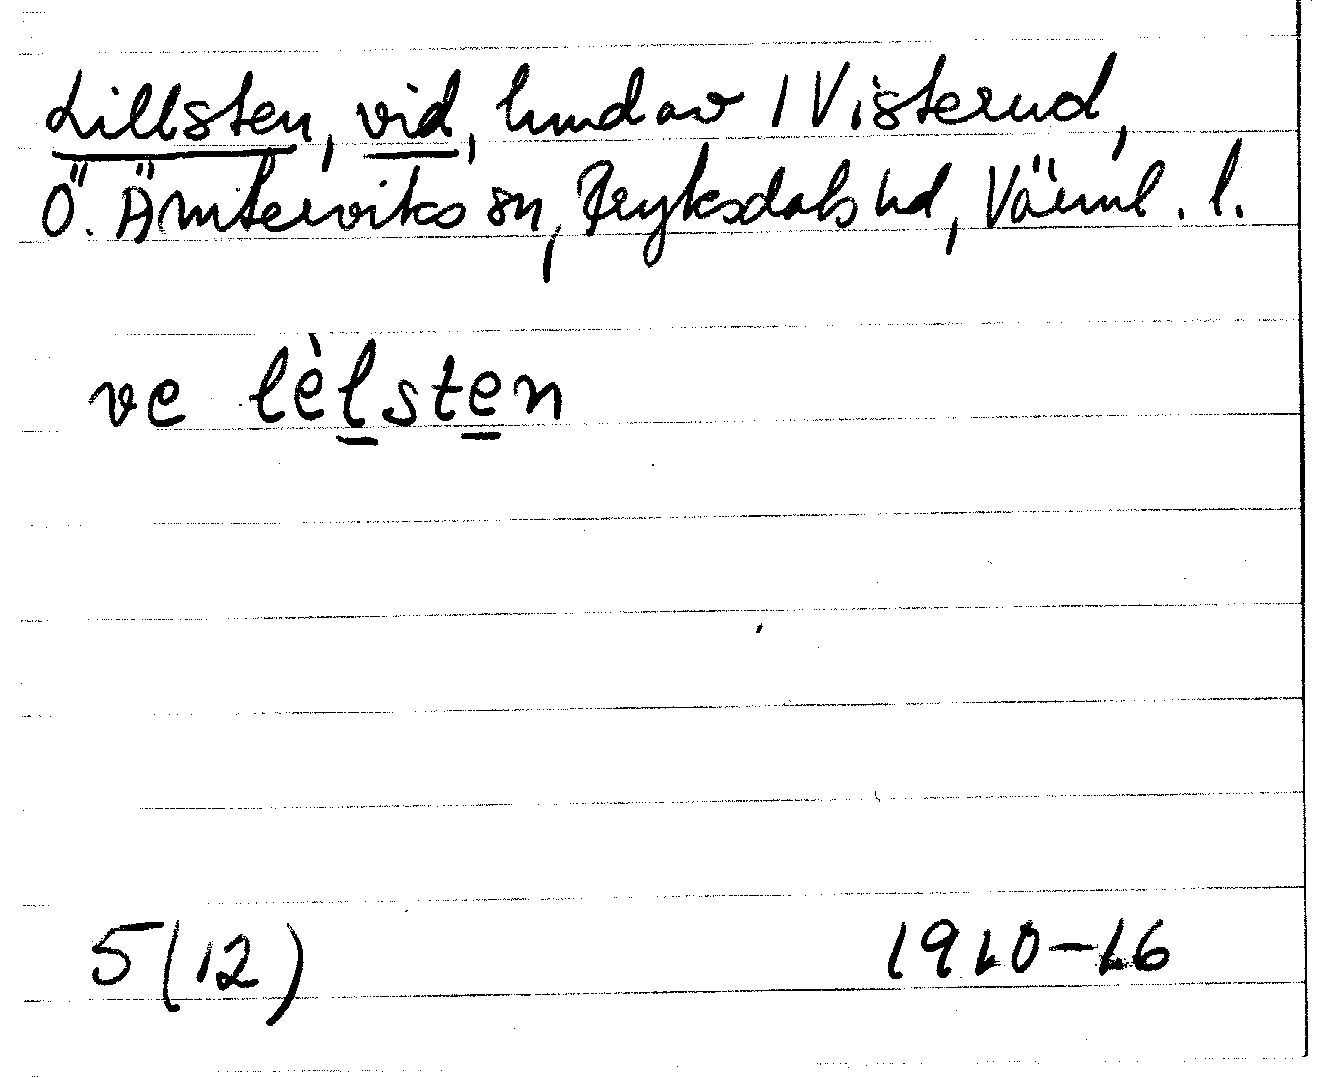 Lillsten, vid, hmd av 1 Visterud,
Ö. Ämterviks sn, Fryksdals hd, Värml. l.
ve lèlsten
5(12) 1910-16